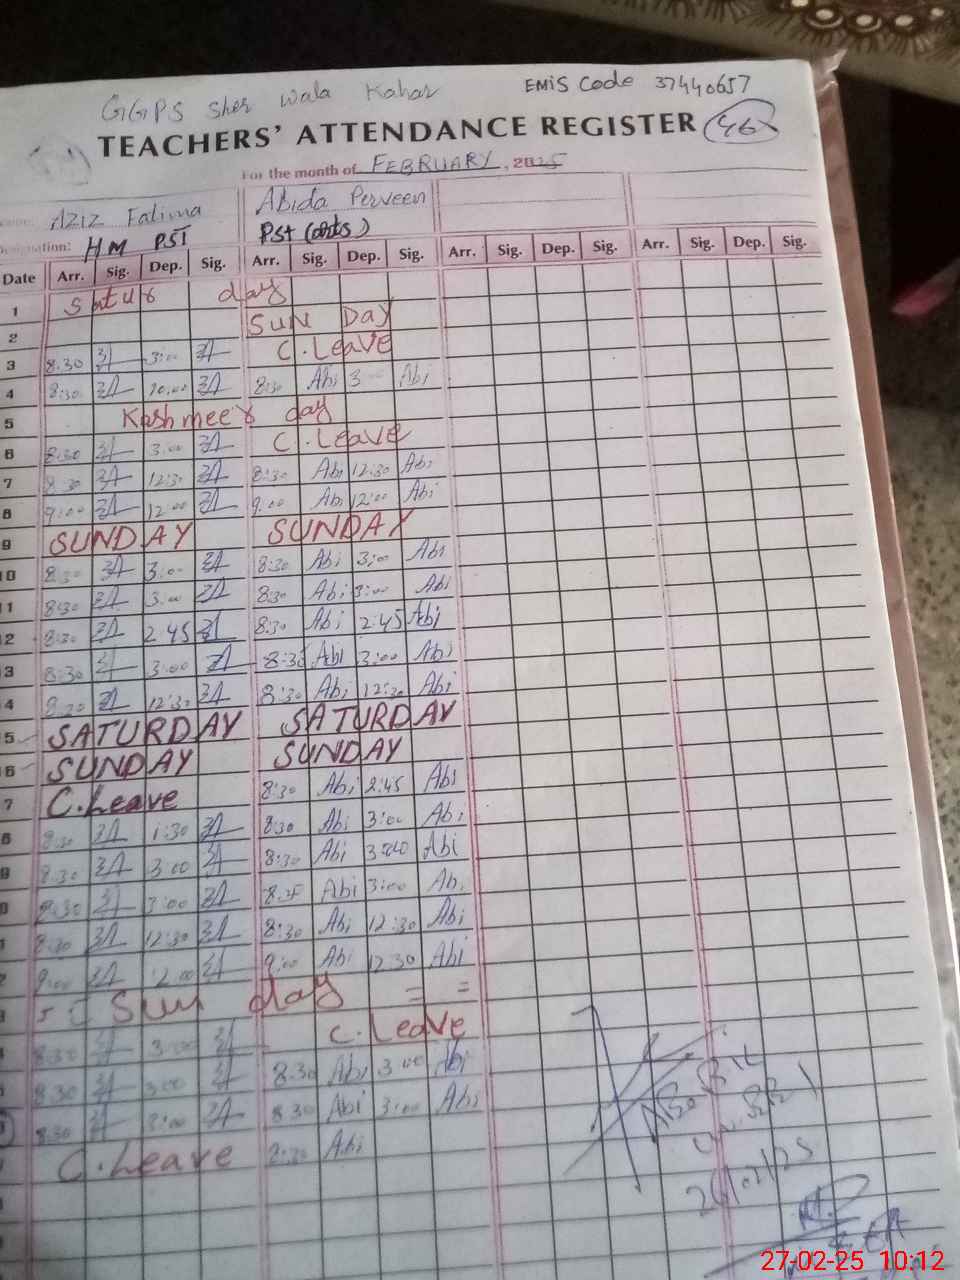 GGPS Sher Wala Kahar EMIS Code 37440657
TEACHERS' ATTENDANCE REGISTER 46
For the month of FEBRUARY, 2025
AZIZ Fatima Abida Perveen
Designation: HM PST PST (Arts)
Date Arr. Sig. Dep. Sig. Arr. Sig. Dep. Sig. Arr. Sig. Dep. Sig. Arr. Sig. Dep. Sig.
1 Satur day
2 SUN DAY
3 8.30 3:00 C. Leave
4 8:30 10:00 8:30 Abi 3 Abi
5 Kashmeer day
6 8:30 3:00 C. Leave
7 8:30 12:30 8:30 Abi 12:30 Abi
8 9:00 12:00 9:00 Abi 12:00 Abi
9 SUNDAY SUNDAY
10 8:30 3:00 8:30 Abi 3:00 Abi
11 8:30 3:00 8:30 Abi 3:00 Abi
12 8:30 2:45 8:30 Abi 2:45 Abi
13 8:30 3:00 8:35 Abi 3:00 Abi
4 8:30 12:30 8:30 Abi 12:30 Abi
5 SATURDAY SATURDAY
16 SUNDAY SUNDAY
7 C. Leave 8:30 Abi 2:45 Abi
8 8:30 1:30 8:30 Abi 3:00 Abi
9 8:30 3:00 8:30 Abi Abi
8:30 3:00 Abi 3:00 Abi
8:30 12:30 8:30 Abi 12:30 Abi
9:00 2:00 9:00 Abi 12:30 Abi
Sun day = =
8:30 3:00 C. Leave
8:30 3:00 8:30 Abi 3:00 Abi
8:30 3:00 8:30 Abi 3:00 Abi
C. Leave 8:30 Abi
26/02/25
27-02-25 10:12